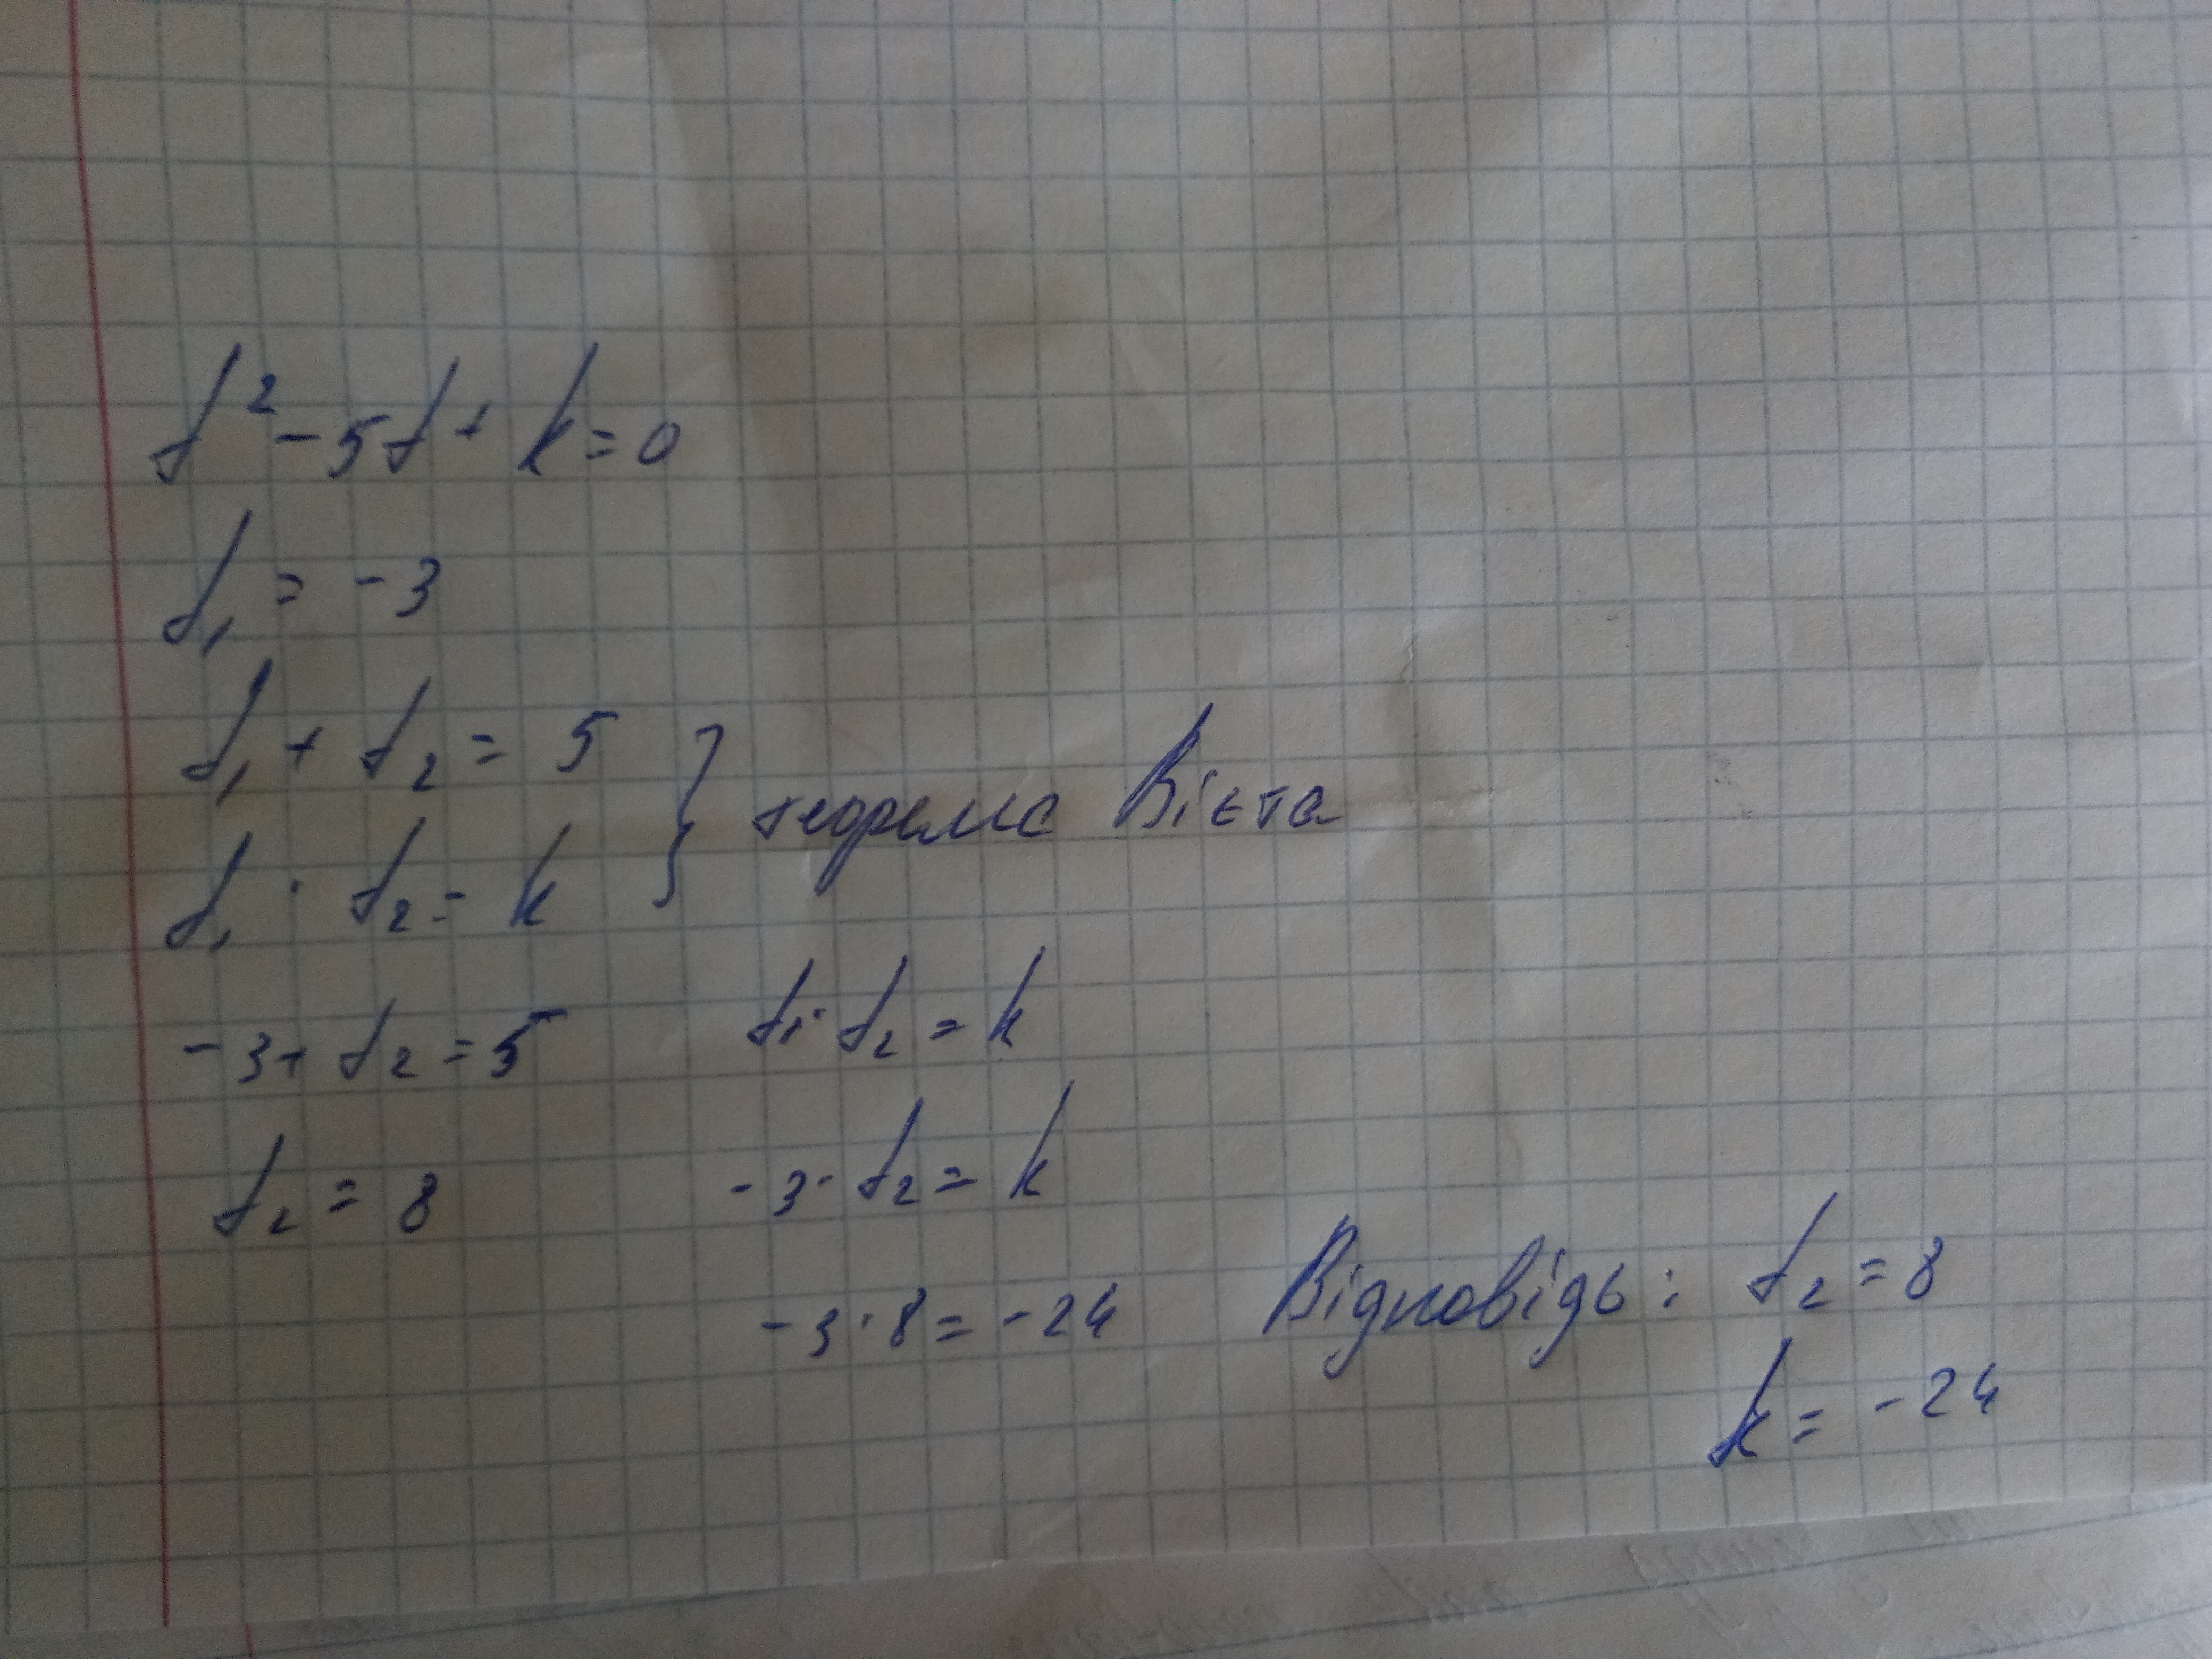 t² - 5t + k = 0
t₁ = -3
t₁ + t₂ = 5
t₁ · t₂ = k
} теорема Вієта
-3 + t₂ = 5
t₂ = 8
t₁ · t₂ = k
-3 · t₂ = k
-3 · 8 = -24
Відповідь: t₂ = 8
k = -24